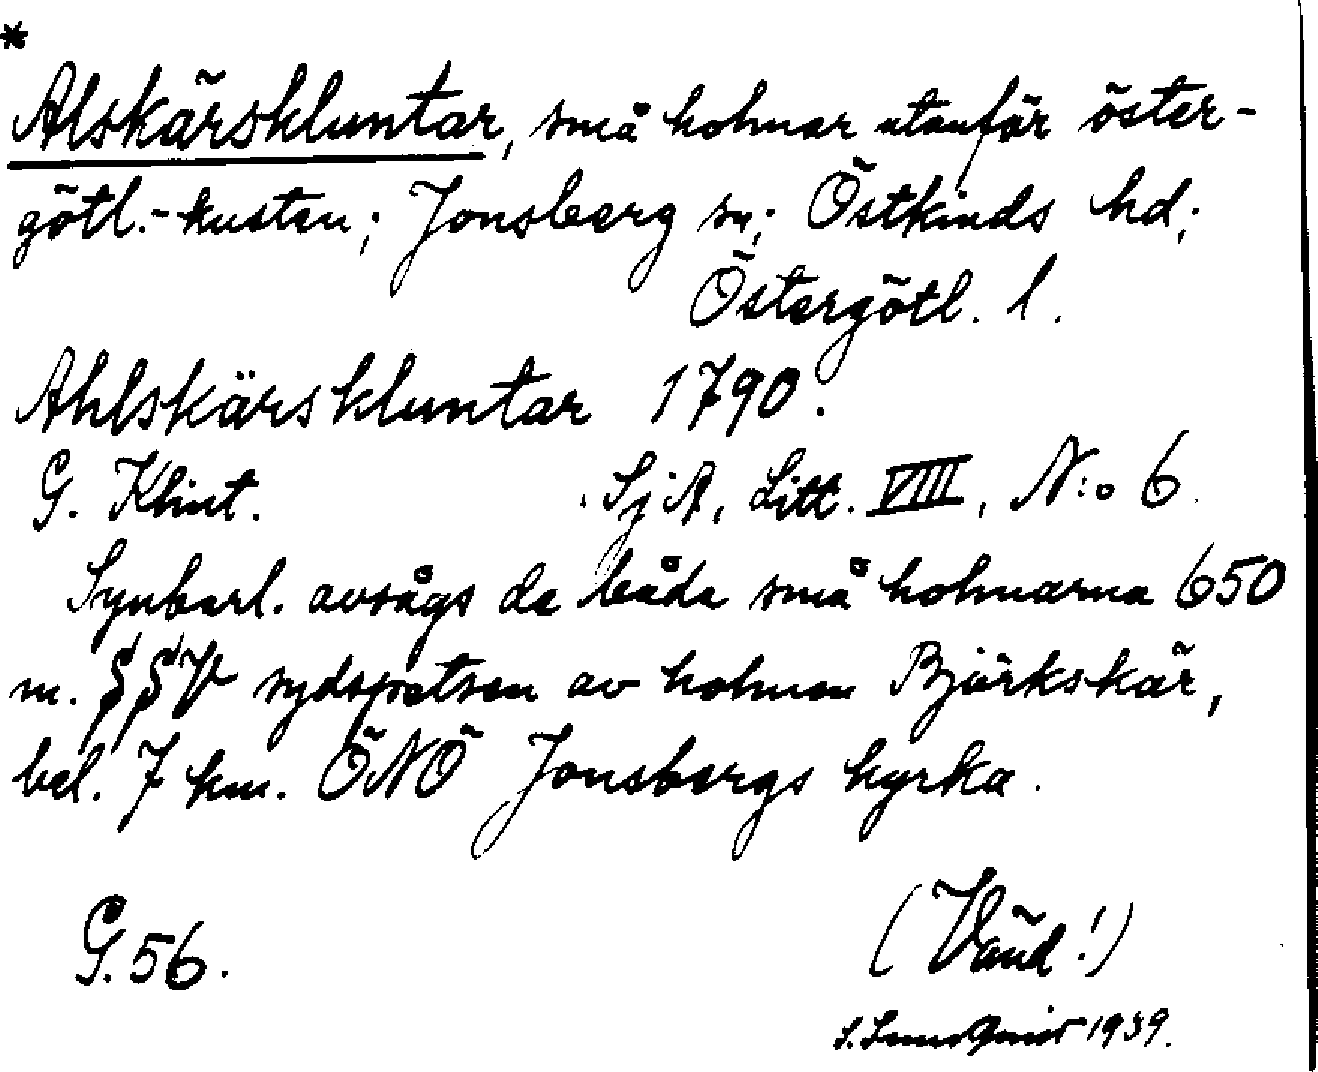 *
Alskärskluntar, små holmar utanför öster-
götl.-kusten; Jonsberg sn; Östkinds hd;
Östergötl. l.
Ahlskärskluntar 1790.
G. Klint. Sj A, Litt. VIII, N:o 6.
Synbarl. avsågs de båda små holmarna 650
m. SSV sydspetsen av holmen Björkskär,
bel. 7 km. ÖNÖ Jonsbergs kyrka.
G. 56. (Vänd!)
S. Lundqvist 1939.